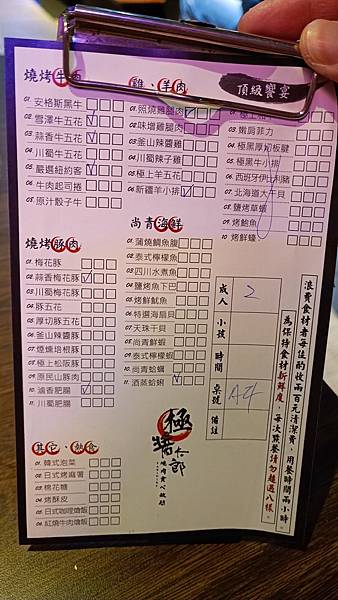 燒烤牛肉
01. 安格斯黑牛
02. 雪澤牛五花
03. 蒜香牛五花
04. 川蜀牛五花
05. 嚴選紐約客
06. 牛肉起司捲
08. 原汁骰子牛
燒烤豚肉
01. 梅花豚
02. 蒜香梅花豚
03. 川蜀梅花豚
04. 豚五花
05. 厚切豚五花
06. 釜山辣醬豚
07. 煙燻培根豚
08. 極上松阪豚
09. 原民山豚肉
10. 滷香肥腸
11. 川蜀肥腸
其它、熱食
01. 韓式泡菜
02. 日式烤麻薯
03. 棉花糖
04. 烤酥皮
05. 日式咖哩燴飯
06. 紅燒牛肉燴飯
雞、羊肉
01. 照燒雞腿肉
02. 味增雞腿肉
03. 釜山辣醬雞
04. 川蜀辣子雞
05. 極上羊五花
06. 新疆羊小排
尚青海鮮
01. 蒲燒鯛魚腹
02. 泰式檸檬魚
03. 四川水煮魚
04. 鹽烤魚下巴
05. 鹽烤魷魚
06. 特選海扇貝
07. 天珠干貝
08. 尚青鮮蝦
09. 泰式檸檬蝦
10. 尚青蛤蠣
11. 酒蒸蛤蜊
極醬太郎
燒肉食べ放題
頂級饗宴
03. 嫩肩菲力
04. 極黑厚切板腱
05. 極黑牛小排
06. 西班牙伊比利豬
07. 北海道大干貝
08. 鹽烤草蝦
09. 烤鮑魚
10. 烤鮮蠔
成人 2
小孩
時間
桌號 A4
備註
浪費食材者每位酌收兩百元清潔費，用餐時間兩小時。
為保持食材新鮮度，每次點餐請勿超過八樣。